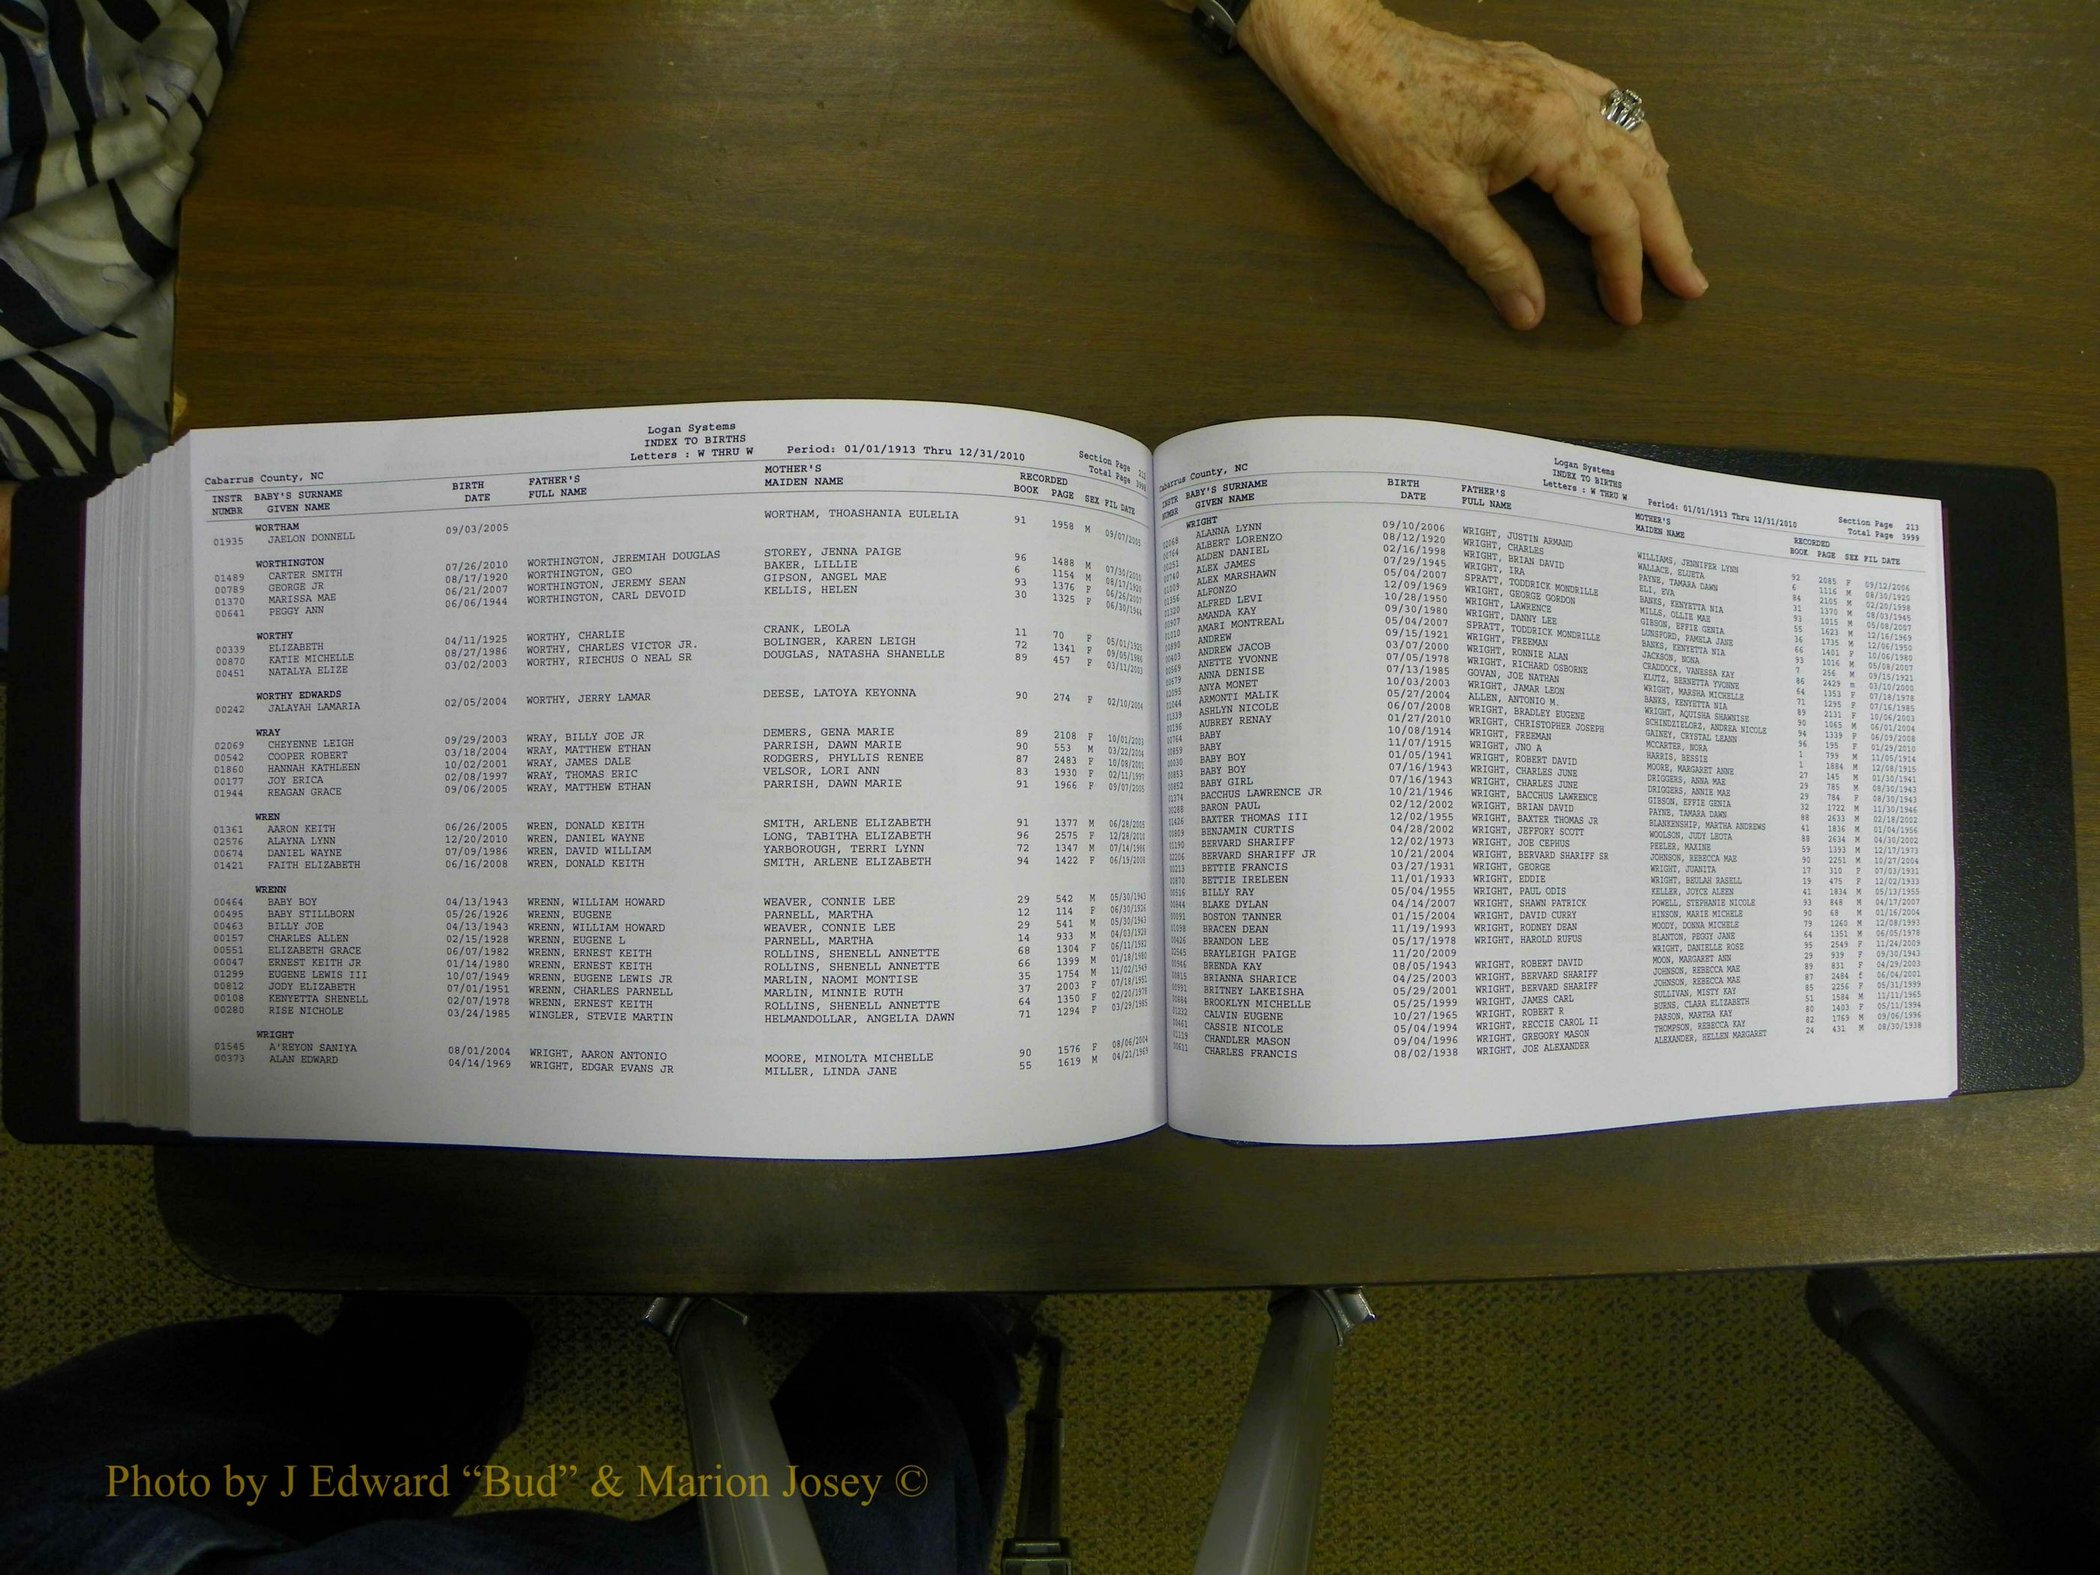 Logan Systems
INDEX TO BIRTHS
Cabarrus County, NC Letters : W THRU W Period: 01/01/1913 Thru 12/31/2010 Section Page
Total Page
INSTR BABY'S SURNAME BIRTH FATHER'S MOTHER'S RECORDED
NUMBR GIVEN NAME DATE FULL NAME MAIDEN NAME BOOK PAGE SEX FIL DATE
WORTHAM
01935 JAELON DONNELL 09/03/2005 WORTHAM, THOASHANIA EULELIA 91 1958 M 09/07/2005
WORTHINGTON
01489 CARTER SMITH 07/26/2010 WORTHINGTON, JEREMIAH DOUGLAS STOREY, JENNA PAIGE 96 1488 M 07/30/2010
00789 GEORGE JR 08/17/1920 WORTHINGTON, GEO BAKER, LILLIE 6 1154 M 08/17/1920
01370 MARISSA MAE 06/21/2007 WORTHINGTON, JEREMY SEAN GIPSON, ANGEL MAE 93 1376 F 06/26/2007
00641 PEGGY ANN 06/06/1944 WORTHINGTON, CARL DEVOID KELLIS, HELEN 30 1325 F 06/30/1944
WORTHY
00339 ELIZABETH 04/11/1925 WORTHY, CHARLIE CRANK, LEOLA 11 70 F 05/01/1925
00870 KATIE MICHELLE 08/27/1986 WORTHY, CHARLES VICTOR JR. BOLINGER, KAREN LEIGH 72 1341 F 09/05/1986
00451 NATALYA ELIZE 03/02/2003 WORTHY, RIECHUS O NEAL SR DOUGLAS, NATASHA SHANELLE 89 457 F 03/11/2003
WORTHY EDWARDS
00242 JALAYAH LAMARIA 02/05/2004 WORTHY, JERRY LAMAR DEESE, LATOYA KEYONNA 90 274 F 02/10/2004
WRAY
02069 CHEYENNE LEIGH 09/29/2003 WRAY, BILLY JOE JR DEMERS, GENA MARIE 89 2108 F 10/01/2003
00542 COOPER ROBERT 03/18/2004 WRAY, MATTHEW ETHAN PARRISH, DAWN MARIE 90 553 M 03/22/2004
01860 HANNAH KATHLEEN 10/02/2001 WRAY, JAMES DALE RODGERS, PHYLLIS RENEE 87 2483 F 10/08/2001
00177 JOY ERICA 02/08/1997 WRAY, THOMAS ERIC VELSOR, LORI ANN 83 1930 F 02/11/1997
01944 REAGAN GRACE 09/06/2005 WRAY, MATTHEW ETHAN PARRISH, DAWN MARIE 91 1966 F 09/07/2005
WREN
01361 AARON KEITH 06/26/2005 WREN, DONALD KEITH SMITH, ARLENE ELIZABETH 91 1377 M 06/28/2005
02576 ALAYNA LYNN 12/20/2010 WREN, DANIEL WAYNE LONG, TABITHA ELIZABETH 96 2575 F 12/28/2010
00674 DANIEL WAYNE 07/09/1986 WREN, DAVID WILLIAM YARBOROUGH, TERRI LYNN 72 1347 M 07/14/1986
01421 FAITH ELIZABETH 06/16/2008 WREN, DONALD KEITH SMITH, ARLENE ELIZABETH 94 1422 F 06/19/2008
WRENN
00464 BABY BOY 04/13/1943 WRENN, WILLIAM HOWARD WEAVER, CONNIE LEE 29 542 M 05/30/1943
00495 BABY STILLBORN 05/26/1926 WRENN, EUGENE PARNELL, MARTHA 12 114 F 06/30/1926
00463 BILLY JOE 04/13/1943 WRENN, WILLIAM HOWARD WEAVER, CONNIE LEE 29 541 M 05/30/1943
00157 CHARLES ALLEN 02/15/1928 WRENN, EUGENE L PARNELL, MARTHA 14 933 M 04/03/1928
00551 ELIZABETH GRACE 06/07/1982 WRENN, ERNEST KEITH ROLLINS, SHENELL ANNETTE 68 1304 F 06/11/1982
00047 ERNEST KEITH JR 01/14/1980 WRENN, ERNEST KEITH ROLLINS, SHENELL ANNETTE 66 1399 M 01/18/1980
01299 EUGENE LEWIS III 10/07/1949 WRENN, EUGENE LEWIS JR MARLIN, NAOMI MONTISE 35 1754 M 11/02/1949
00812 JODY ELIZABETH 07/01/1951 WRENN, CHARLES PARNELL MARLIN, MINNIE RUTH 37 2003 F 07/18/1951
00108 KENYETTA SHENELL 02/07/1978 WRENN, ERNEST KEITH ROLLINS, SHENELL ANNETTE 64 1350 F 02/20/1978
00280 RISE NICHOLE 03/24/1985 WINGLER, STEVIE MARTIN HELMANDOLLAR, ANGELIA DAWN 71 1294 F 03/29/1985
WRIGHT
01545 A'REYON SANIYA 08/01/2004 WRIGHT, AARON ANTONIO MOORE, MINOLTA MICHELLE 90 1576 F 08/06/2004
00373 ALAN EDWARD 04/14/1969 WRIGHT, EDGAR EVANS JR MILLER, LINDA JANE 55 1619 M 04/21/1969
Logan Systems
INDEX TO BIRTHS
Cabarrus County, NC Letters : W THRU W Period: 01/01/1913 Thru 12/31/2010 Section Page 213
Total Page 3999
INSTR BABY'S SURNAME BIRTH FATHER'S MOTHER'S RECORDED
NUMBR GIVEN NAME DATE FULL NAME MAIDEN NAME BOOK PAGE SEX FIL DATE
WRIGHT
02068 ALANNA LYNN 09/10/2006 WRIGHT, JUSTIN ARMAND WILLIAMS, JENNIFER LYNN 92 2085 F 09/12/2006
00764 ALBERT LORENZO 08/12/1920 WRIGHT, CHARLES WALLACE, ELUETA 6 1116 M 08/30/1920
00251 ALDEN DANIEL 02/16/1998 WRIGHT, BRIAN DAVID PAYNE, TAMARA DAWN 84 2105 M 02/20/1998
00740 ALEX JAMES 07/29/1945 WRIGHT, IRA ELI, EVA 31 1370 M 08/03/1945
01009 ALEX MARSHAWN 05/04/2007 SPRATT, TODDRICK MONDRILLE BANKS, KENYETTA NIA 93 1015 M 05/08/2007
01356 ALFONZO 12/09/1969 WRIGHT, GEORGE GORDON MILLS, OLLIE MAE 55 1623 M 12/16/1969
01320 ALFRED LEVI 10/28/1950 WRIGHT, LAWRENCE GIBSON, EFFIE GENIA 36 1735 M 12/06/1950
00907 AMANDA KAY 09/30/1980 WRIGHT, DANNY LEE LUNSFORD, PAMELA JANE 66 1401 F 10/06/1980
01010 AMARI MONTREAL 05/04/2007 SPRATT, TODDRICK MONDRILLE BANKS, KENYETTA NIA 93 1016 M 05/08/2007
00890 ANDREW 09/15/1921 WRIGHT, FREEMAN JACKSON, NONA 7 256 M 09/15/1921
00403 ANDREW JACOB 03/07/2000 WRIGHT, RONNIE ALAN CRADDOCK, VANESSA KAY 86 2429 m 03/10/2000
00569 ANETTE YVONNE 07/05/1978 WRIGHT, RICHARD OSBORNE KLUTZ, BERNETTA YVONNE 64 1353 F 07/18/1978
00679 ANNA DENISE 07/13/1985 GOVAN, JOE NATHAN WRIGHT, MARSHA MICHELLE 71 1295 F 07/16/1985
02095 ANYA MONET 10/03/2003 WRIGHT, JAMAR LEON BANKS, KENYETTA NIA 89 2131 F 10/06/2003
01044 ARMONTI MALIK 05/27/2004 ALLEN, ANTONIO M. WRIGHT, AQUISHA SHAWNISE 90 1065 M 06/01/2004
01339 ASHLYN NICOLE 06/07/2008 WRIGHT, BRADLEY EUGENE SCHINDZIELORZ, ANDREA NICOLE 94 1339 F 06/09/2008
00196 AUBREY RENAY 01/27/2010 WRIGHT, CHRISTOPHER JOSEPH GAINEY, CRYSTAL LEANN 96 195 F 01/29/2010
00764 BABY 10/08/1914 WRIGHT, FREEMAN MCCARTER, NORA 1 799 M 11/05/1914
00859 BABY 11/07/1915 WRIGHT, JNO A HARRIS, BESSIE 1 1884 M 12/08/1915
00030 BABY BOY 01/05/1941 WRIGHT, ROBERT DAVID MOORE, MARGARET ANNE 27 145 M 01/30/1941
00853 BABY BOY 07/16/1943 WRIGHT, CHARLES JUNE DRIGGERS, ANNA MAE 29 785 M 08/30/1943
00852 BABY GIRL 07/16/1943 WRIGHT, CHARLES JUNE DRIGGERS, ANNIE MAE 29 784 F 08/30/1943
01374 BACCHUS LAWRENCE JR 10/21/1946 WRIGHT, BACCHUS LAWRENCE GIBSON, EFFIE GENIA 32 1722 M 11/30/1946
00288 BARON PAUL 02/12/2002 WRIGHT, BRIAN DAVID PAYNE, TAMARA DAWN 88 2633 M 02/18/2002
01426 BAXTER THOMAS III 12/02/1955 WRIGHT, BAXTER THOMAS JR BLANKENSHIP, MARTHA ANDREWS 41 1836 M 01/04/1956
00809 BENJAMIN CURTIS 04/28/2002 WRIGHT, JEFFORY SCOTT WOOLSON, JUDY LEOTA 88 2634 M 04/30/2002
01190 BERVARD SHARIFF 12/02/1973 WRIGHT, JOE CEPHUS PEELER, MAXINE 59 1393 M 12/17/1973
02206 BERVARD SHARIFF JR 10/21/2004 WRIGHT, BERVARD SHARIFF SR JOHNSON, REBECCA MAE 90 2251 M 10/27/2004
00213 BETTIE FRANCIS 03/27/1931 WRIGHT, GEORGE WRIGHT, JUANITA 17 310 F 07/03/1931
00870 BETTIE IRELEEN 11/01/1933 WRIGHT, EDDIE WRIGHT, BEULAH RASELL 19 475 F 12/02/1933
00516 BILLY RAY 05/04/1955 WRIGHT, PAUL ODIS KELLER, JOYCE ALEEN 41 1834 M 05/13/1955
00844 BLAKE DYLAN 04/14/2007 WRIGHT, SHAWN PATRICK POWELL, STEPHANIE NICOLE 93 848 M 04/17/2007
00091 BOSTON TANNER 01/15/2004 WRIGHT, DAVID CURRY HINSON, MARIE MICHELE 90 68 M 01/16/2004
01098 BRACEN DEAN 11/19/1993 WRIGHT, RODNEY DEAN MOODY, DONNA MICHELE 79 1260 M 12/08/1993
00426 BRANDON LEE 05/17/1978 WRIGHT, HAROLD RUFUS BLANTON, PEGGY JANE 64 1351 M 06/05/1978
02545 BRAYLEIGH PAIGE 11/20/2009 WRIGHT, DANIELLE ROSE 95 2549 F 11/24/2009
00946 BRENDA KAY 08/05/1943 WRIGHT, ROBERT DAVID MOON, MARGARET ANN 29 939 F 09/30/1943
00815 BRIANNA SHARICE 04/25/2003 WRIGHT, BERVARD SHARIFF JOHNSON, REBECCA MAE 89 831 F 04/29/2003
00991 BRITNEY LAKEISHA 05/29/2001 WRIGHT, BERVARD SHARIFF JOHNSON, REBECCA MAE 87 2484 f 06/04/2001
00884 BROOKLYN MICHELLE 05/25/1999 WRIGHT, JAMES CARL SULLIVAN, MISTY KAY 85 2256 F 05/31/1999
01232 CALVIN EUGENE 10/27/1965 WRIGHT, ROBERT R BURNS, CLARA ELIZABETH 51 1584 M 11/11/1965
00461 CASSIE NICOLE 05/04/1994 WRIGHT, RECCIE CAROL II PARSON, MARTHA KAY 80 1403 F 05/11/1994
01119 CHANDLER MASON 09/04/1996 WRIGHT, GREGORY MASON THOMPSON, REBECCA KAY 82 1769 M 09/06/1996
00611 CHARLES FRANCIS 08/02/1938 WRIGHT, JOE ALEXANDER ALEXANDER, HELLEN MARGARET 24 431 M 08/30/1938
Photo by J Edward “Bud” & Marion Josey ©